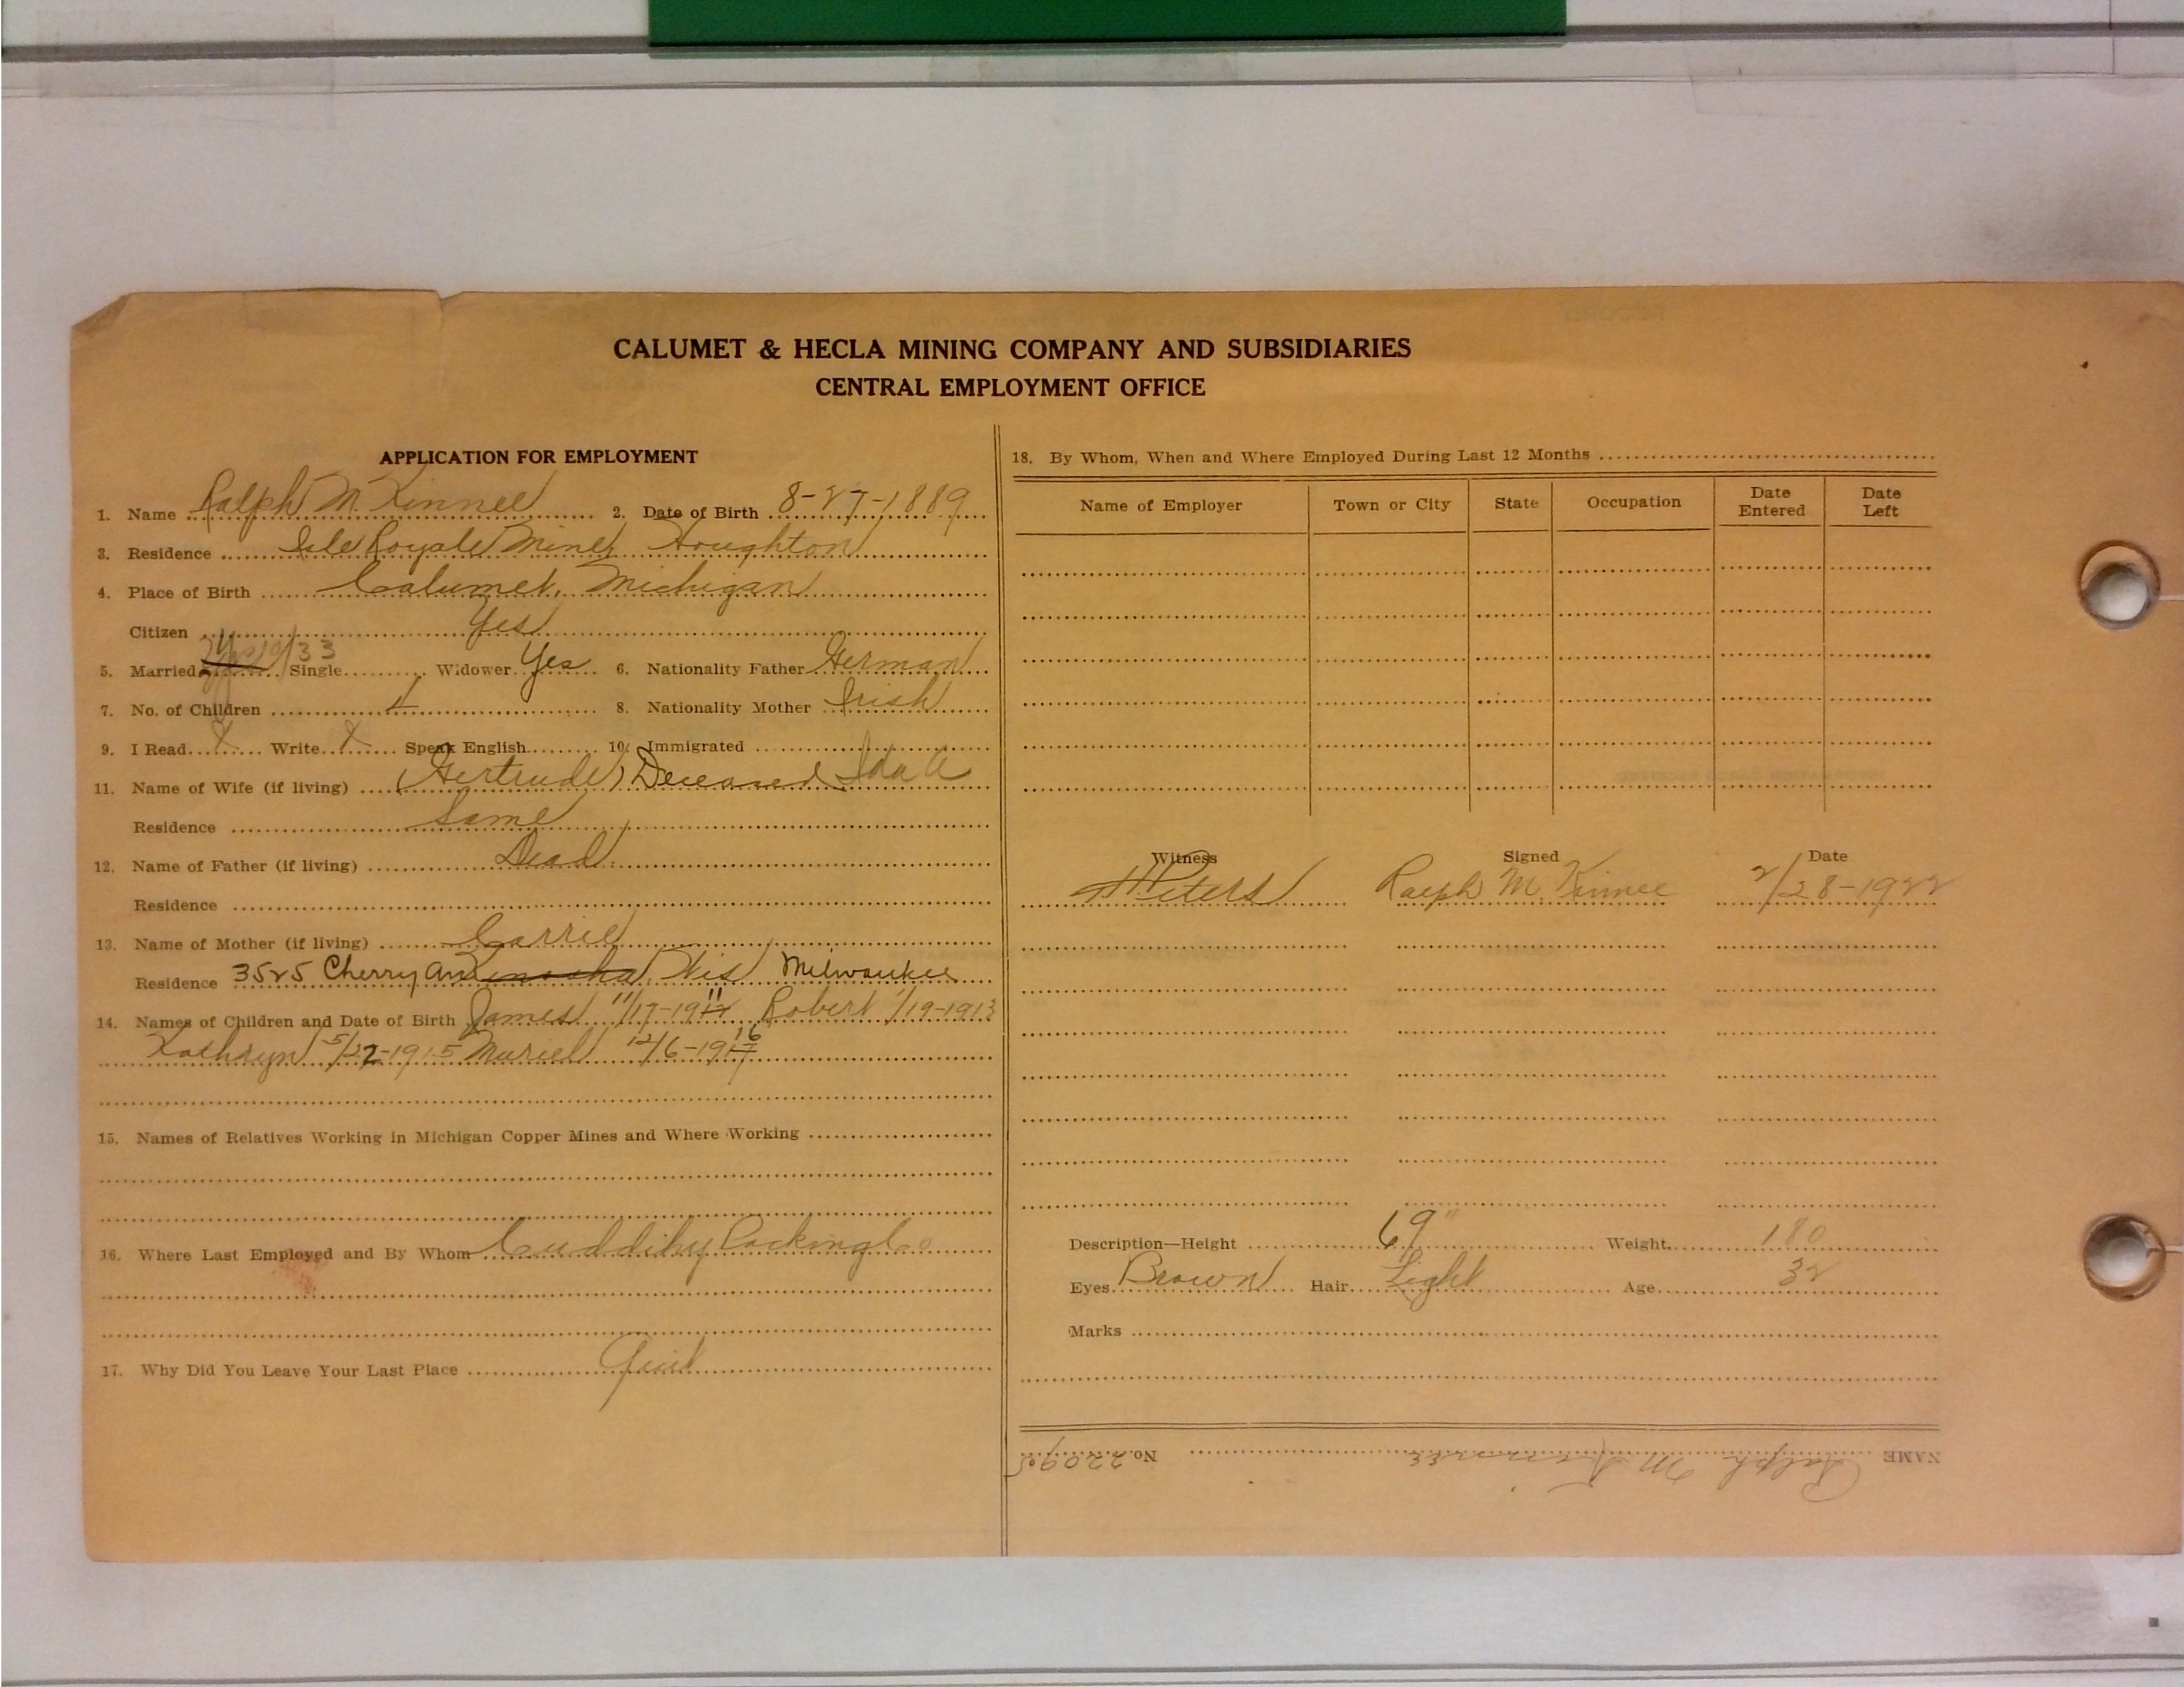 CALUMET & HECLA MINING COMPANY AND SUBSIDIARIES
CENTRAL EMPLOYMENT OFFICE
APPLICATION FOR EMPLOYMENT
1. Name Ralph M. Kinnee 2. Date of Birth 8-27-1889
3. Residence Isle Royale Mine Houghton
4. Place of Birth Calumet, Michigan
Citizen Yes
5. Married /33 Single Widower Yes 6. Nationality Father German
7. No. of Children 4 8. Nationality Mother Irish
9. I Read X Write X Speak English 10. Immigrated
11. Name of Wife (if living) (Gertrude) Deceased Ida
Residence Same
12. Name of Father (if living) Dead
Residence
13. Name of Mother (if living) Carrie
Residence 3525 Cherry Kenosha, Wis Milwaukee
14. Names of Children and Date of Birth James 11/17-1911 Robert 1/19-1913
Kathryn 5/22-1915 Muriel 12/6-1916
15. Names of Relatives Working in Michigan Copper Mines and Where Working
16. Where Last Employed and By Whom Cuddihy Packing Co
17. Why Did You Leave Your Last Place Quit
18. By Whom, When and Where Employed During Last 12 Months
Name of Employer Town or City State Occupation Date Entered Date Left
Witness Signed Date
Peters Ralph M. Kinnee 2/28-1922
Description—Height 69" Weight 180
Eyes Brown Hair Light Age 32
Marks
NAME Ralph M Kinnee No. 2209